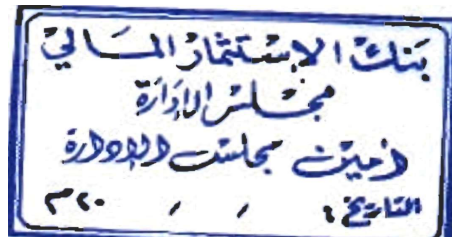 بنك الاستثمار المالي
مجلس الإدارة
أمين مجلس الإدارة
التاريخ : / / ٢٠م